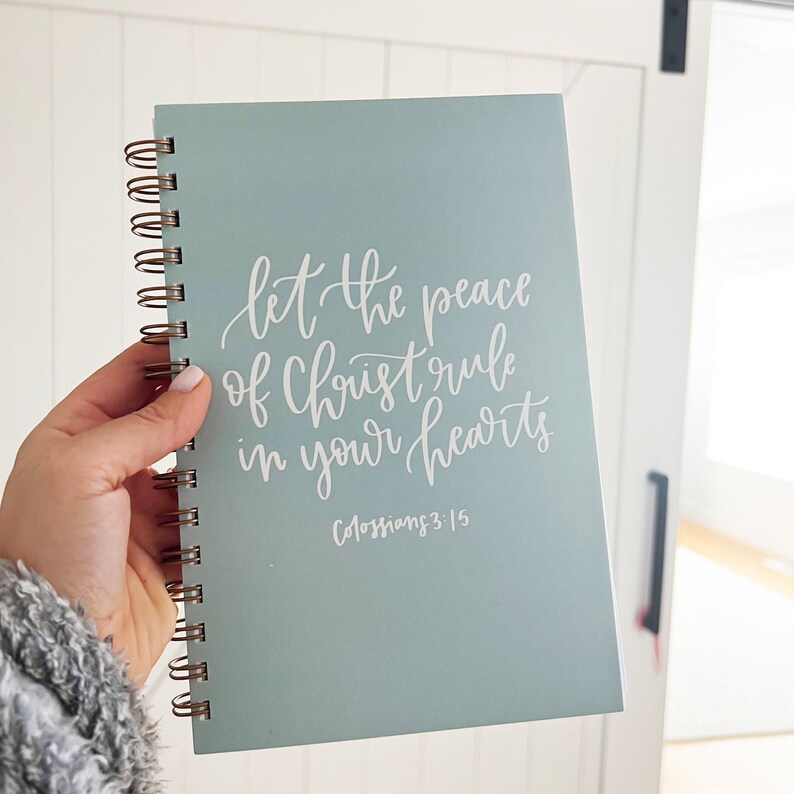 let the peace
of Christ rule
in your hearts
Colossians 3:15